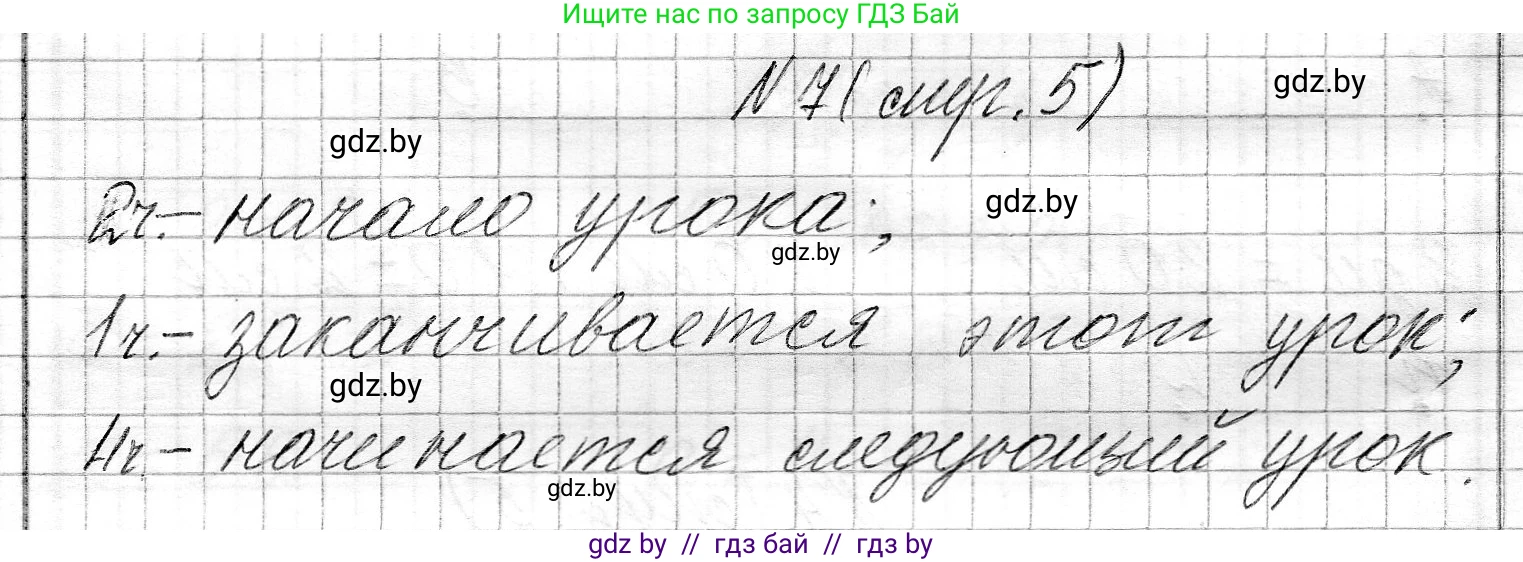 Ищите нас по запросу ГДЗ Бай
N 7 (стр. 5)
gdz.by
gdz.by
2ч. – начало урока;
gdz.by
gdz.by
1ч. – заканчивается этот урок;
gdz.by
4ч. – начинается следующий урок.
gdz.by
gdz by // гдз бай // гдз by